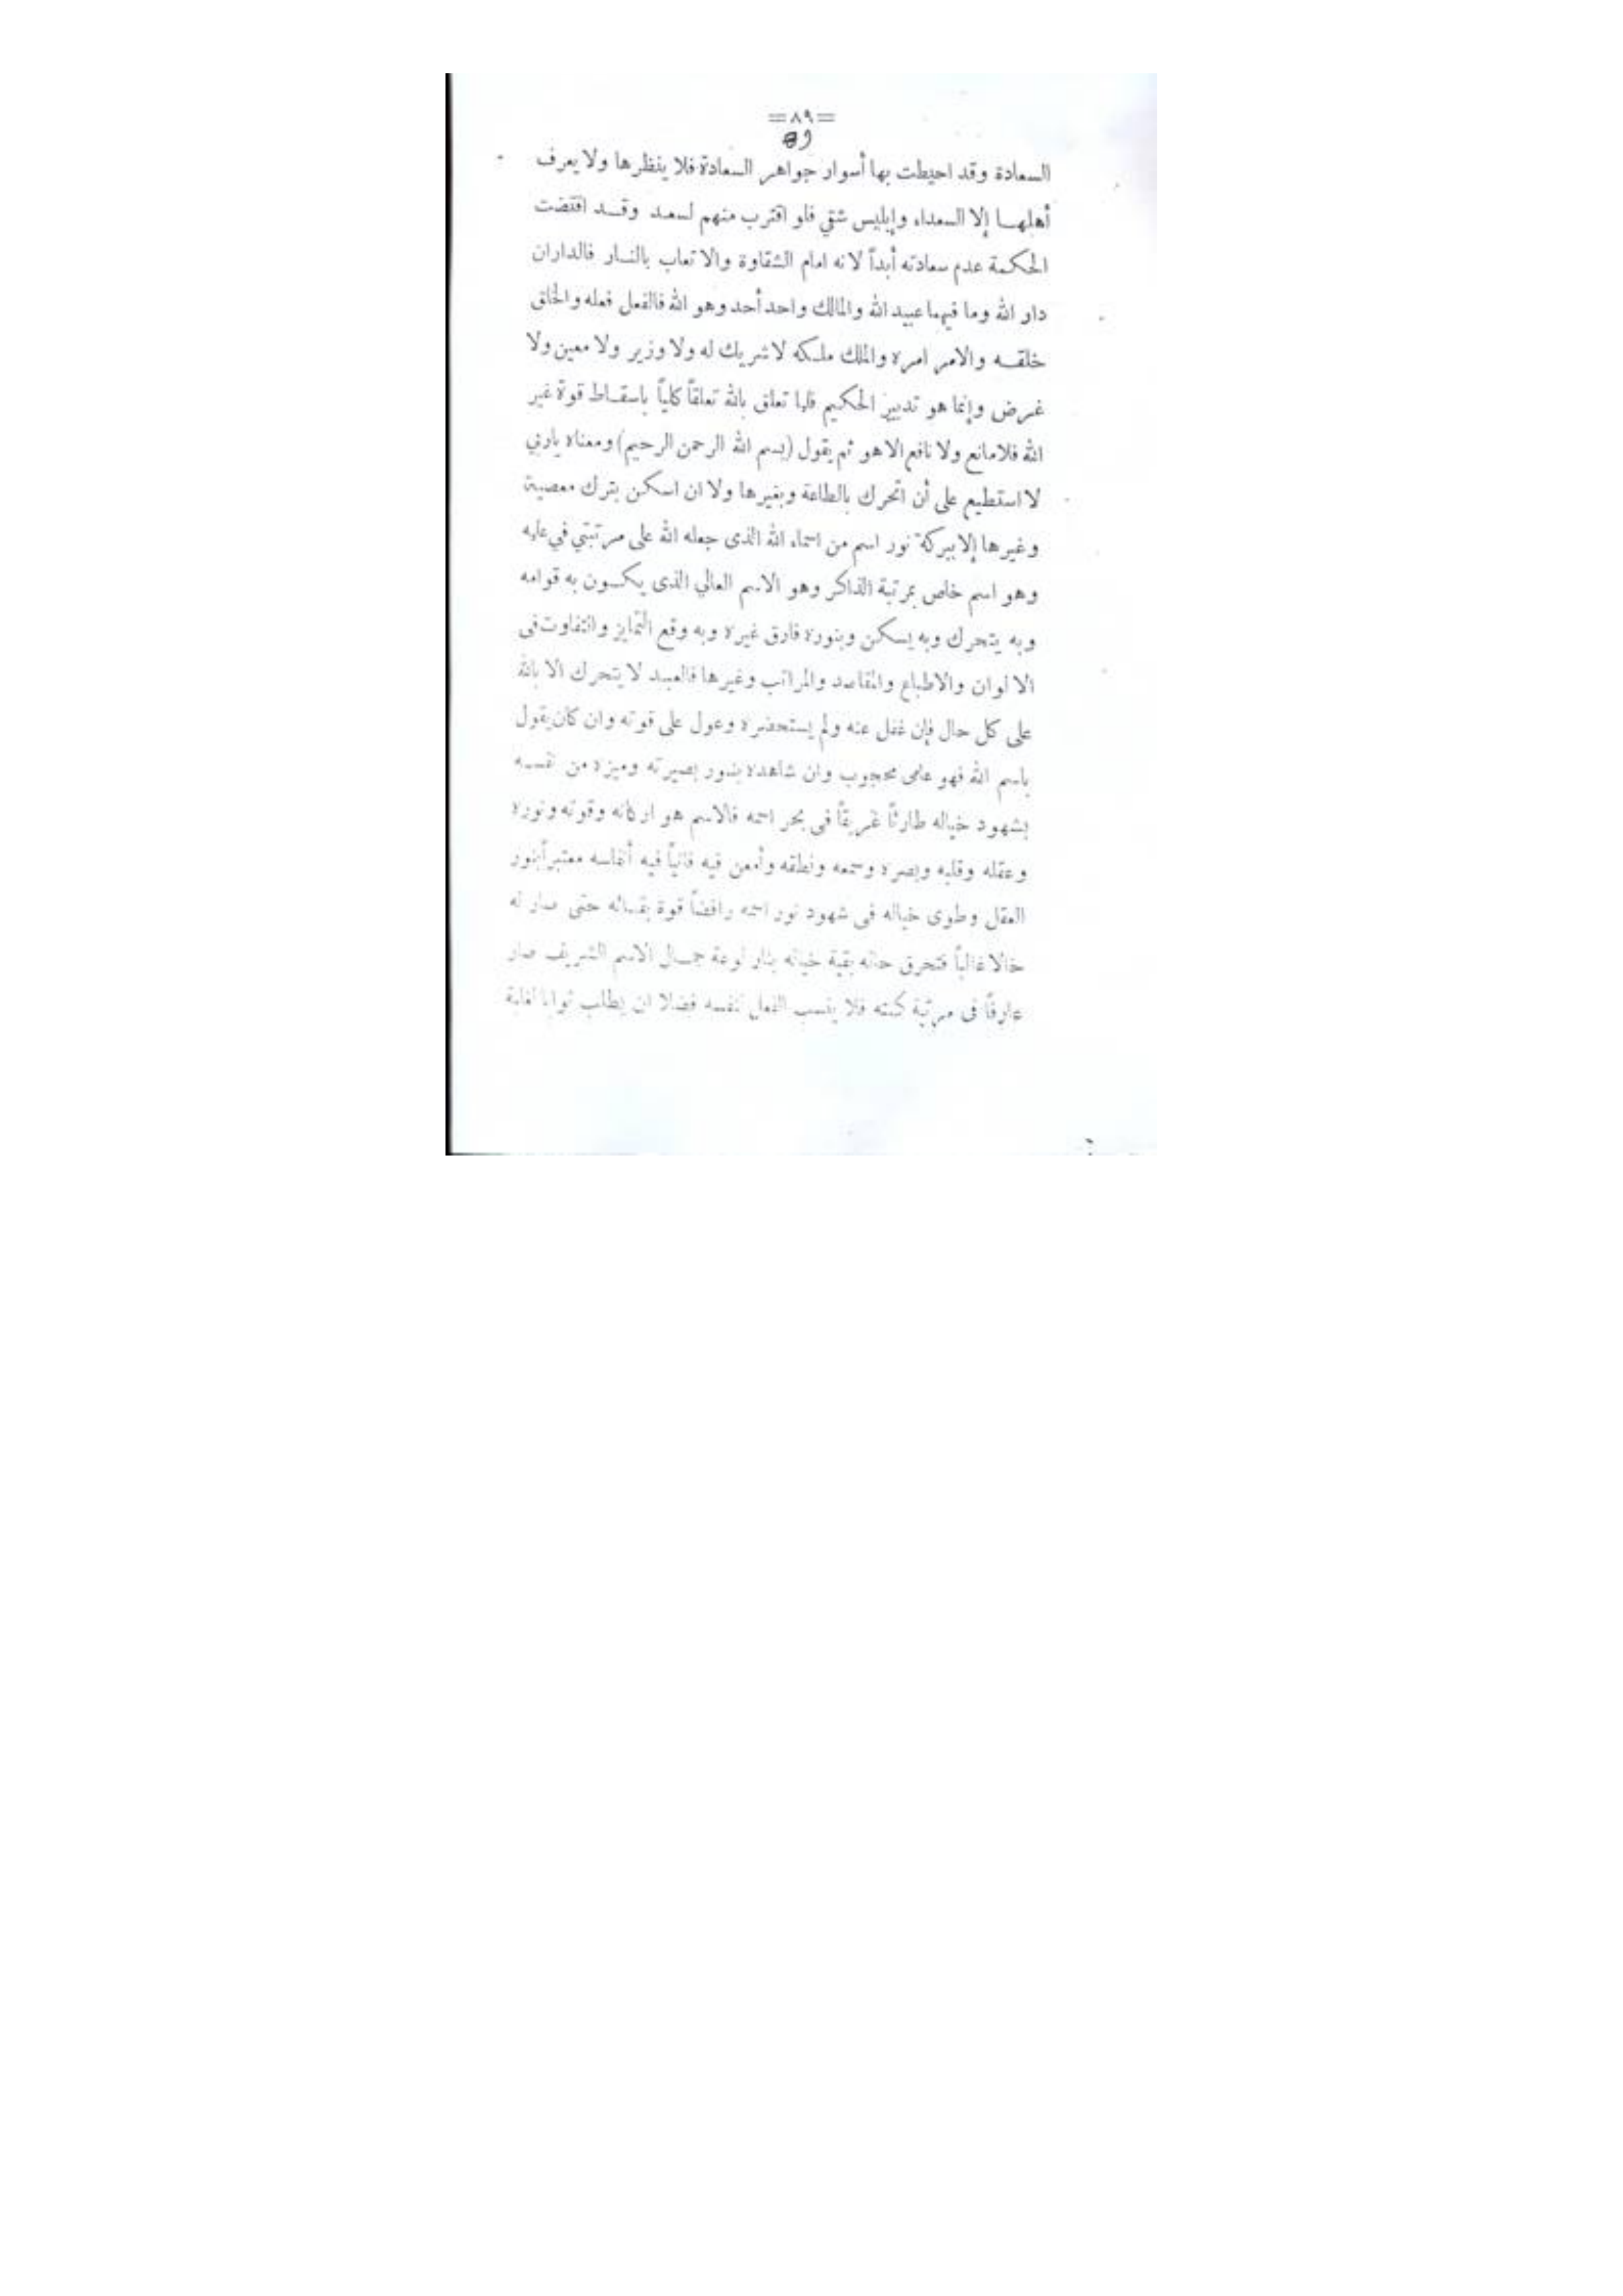 =٨٩=
السعادة وقد احيطت بها أسوار جواهر السعادة فلا ينظرها ولا يعرف
أهلهـا إلا السعداء وإبليس شقي فلو اقترب منهم لسعد وقـد اقتضت
الحكمة عدم سعادته أبداً لانه امام الشقاوة والاتعاب بالنـار فالداران
دار الله وما فيهما عبيد الله والمالك واحد أحد وهو الله فالفعل فعله والخلق
خلقـه والامر امره والملك ملكه لا شريك له ولا وزير ولا معين ولا
غرض وإنما هو تدبير الحكيم فلما تعلق بالله تعلقاً كلياً باسقـاط قوة غير
الله فلا مانع ولا نافع الا هو ثم يقول (بسم الله الرحمن الرحيم) ومعناه ياربي
لا استطيع على أن اتحرك بالطاعة وبغيرها ولا ان اسكن بترك معصية
وغيرها إلا ببركة نور اسم من اسماء الله الذى جعله الله على مرتبتي في علمه
وهو اسم خاص بمرتبة الذاكر وهو الاسم العالي الذى يكـون به قوامه
وبه يتحرك وبه يسكن وبنوره فارق غيره وبه وقع التمايز والتفاوت فى
الالوان والاطباع والمقاصد والمراتب وغيرها فالعبد لا يتحرك الا بالله
على كل حال فإن غفل عنه ولم يستحضره وعول على قوته وان كان يقول
باسم الله فهو عامى محجوب وان شاهده بنور بصيرته وميزه من نفسـه
بشهود خياله طارئاً غريقاً فى بحر اسمه فالاسم هو اركانه وقوته ونوره
وعقله وقلبه وبصره وسمعه ونطقه وأمعن فيه فانياً فيه أنفاسه معتبراً بنور
العقل وطوى خياله فى شهود نور اسمه رافضاً قوة بقـائه حتى صار له
حالا غالباً فتحرق حاله بقية خياله بنار لوعة جمـال الاسم الشريف صار
عارفاً فى مرتبة كنته فلا ينسب الفعل لنفسه فضلا ان يطلب ثوابا